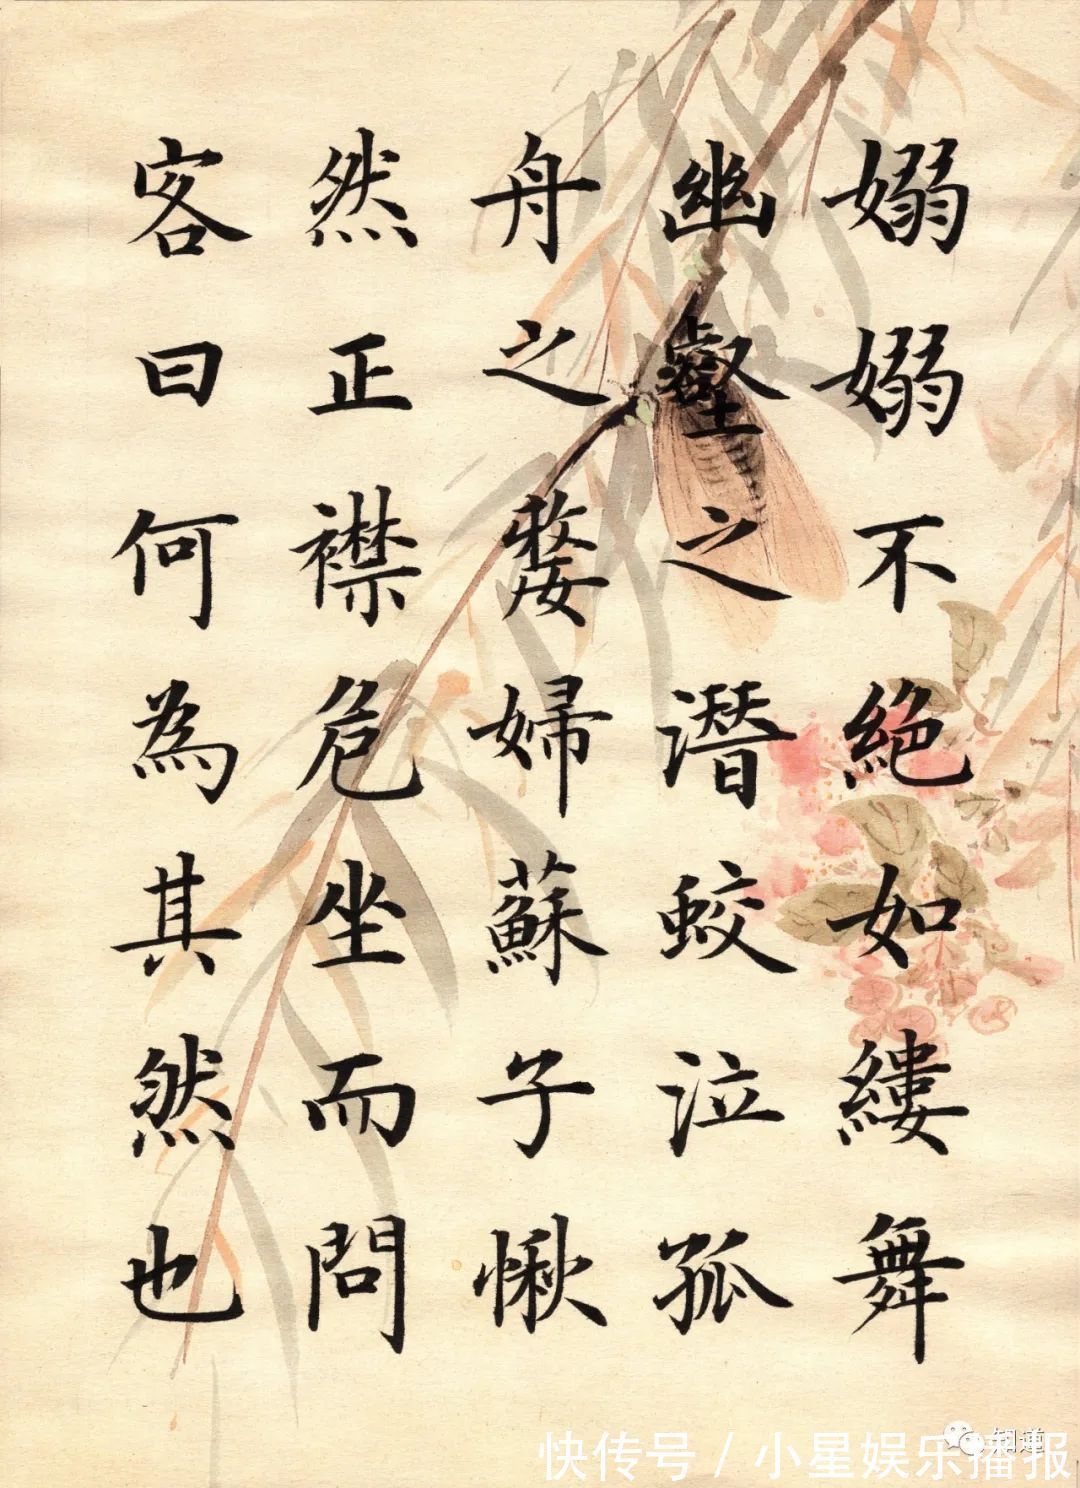 嫋嫋不絕如縷舞
幽壑之潛蛟泣孤
舟之嫠婦蘇子愀
然正襟危坐而問
客曰何為其然也
快传号/小星娱乐播报